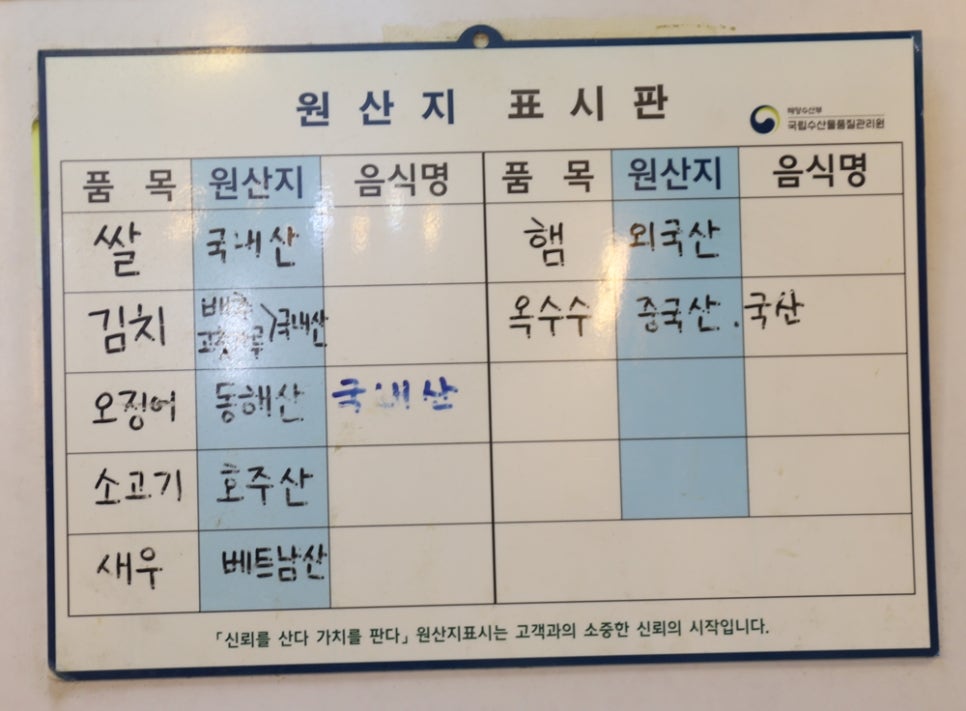 원산지 표시판
해양수산부
국립수산물품질관리원
품목 원산지 음식명 품목 원산지 음식명
쌀 국내산 햄 외국산
김치 배추 고춧가루 > 국내산 옥수수 중국산 . 국산
오징어 동해산 국내산
소고기 호주산
새우 베트남산
「신뢰를 산다 가치를 판다」 원산지표시는 고객과의 소중한 신뢰의 시작입니다.